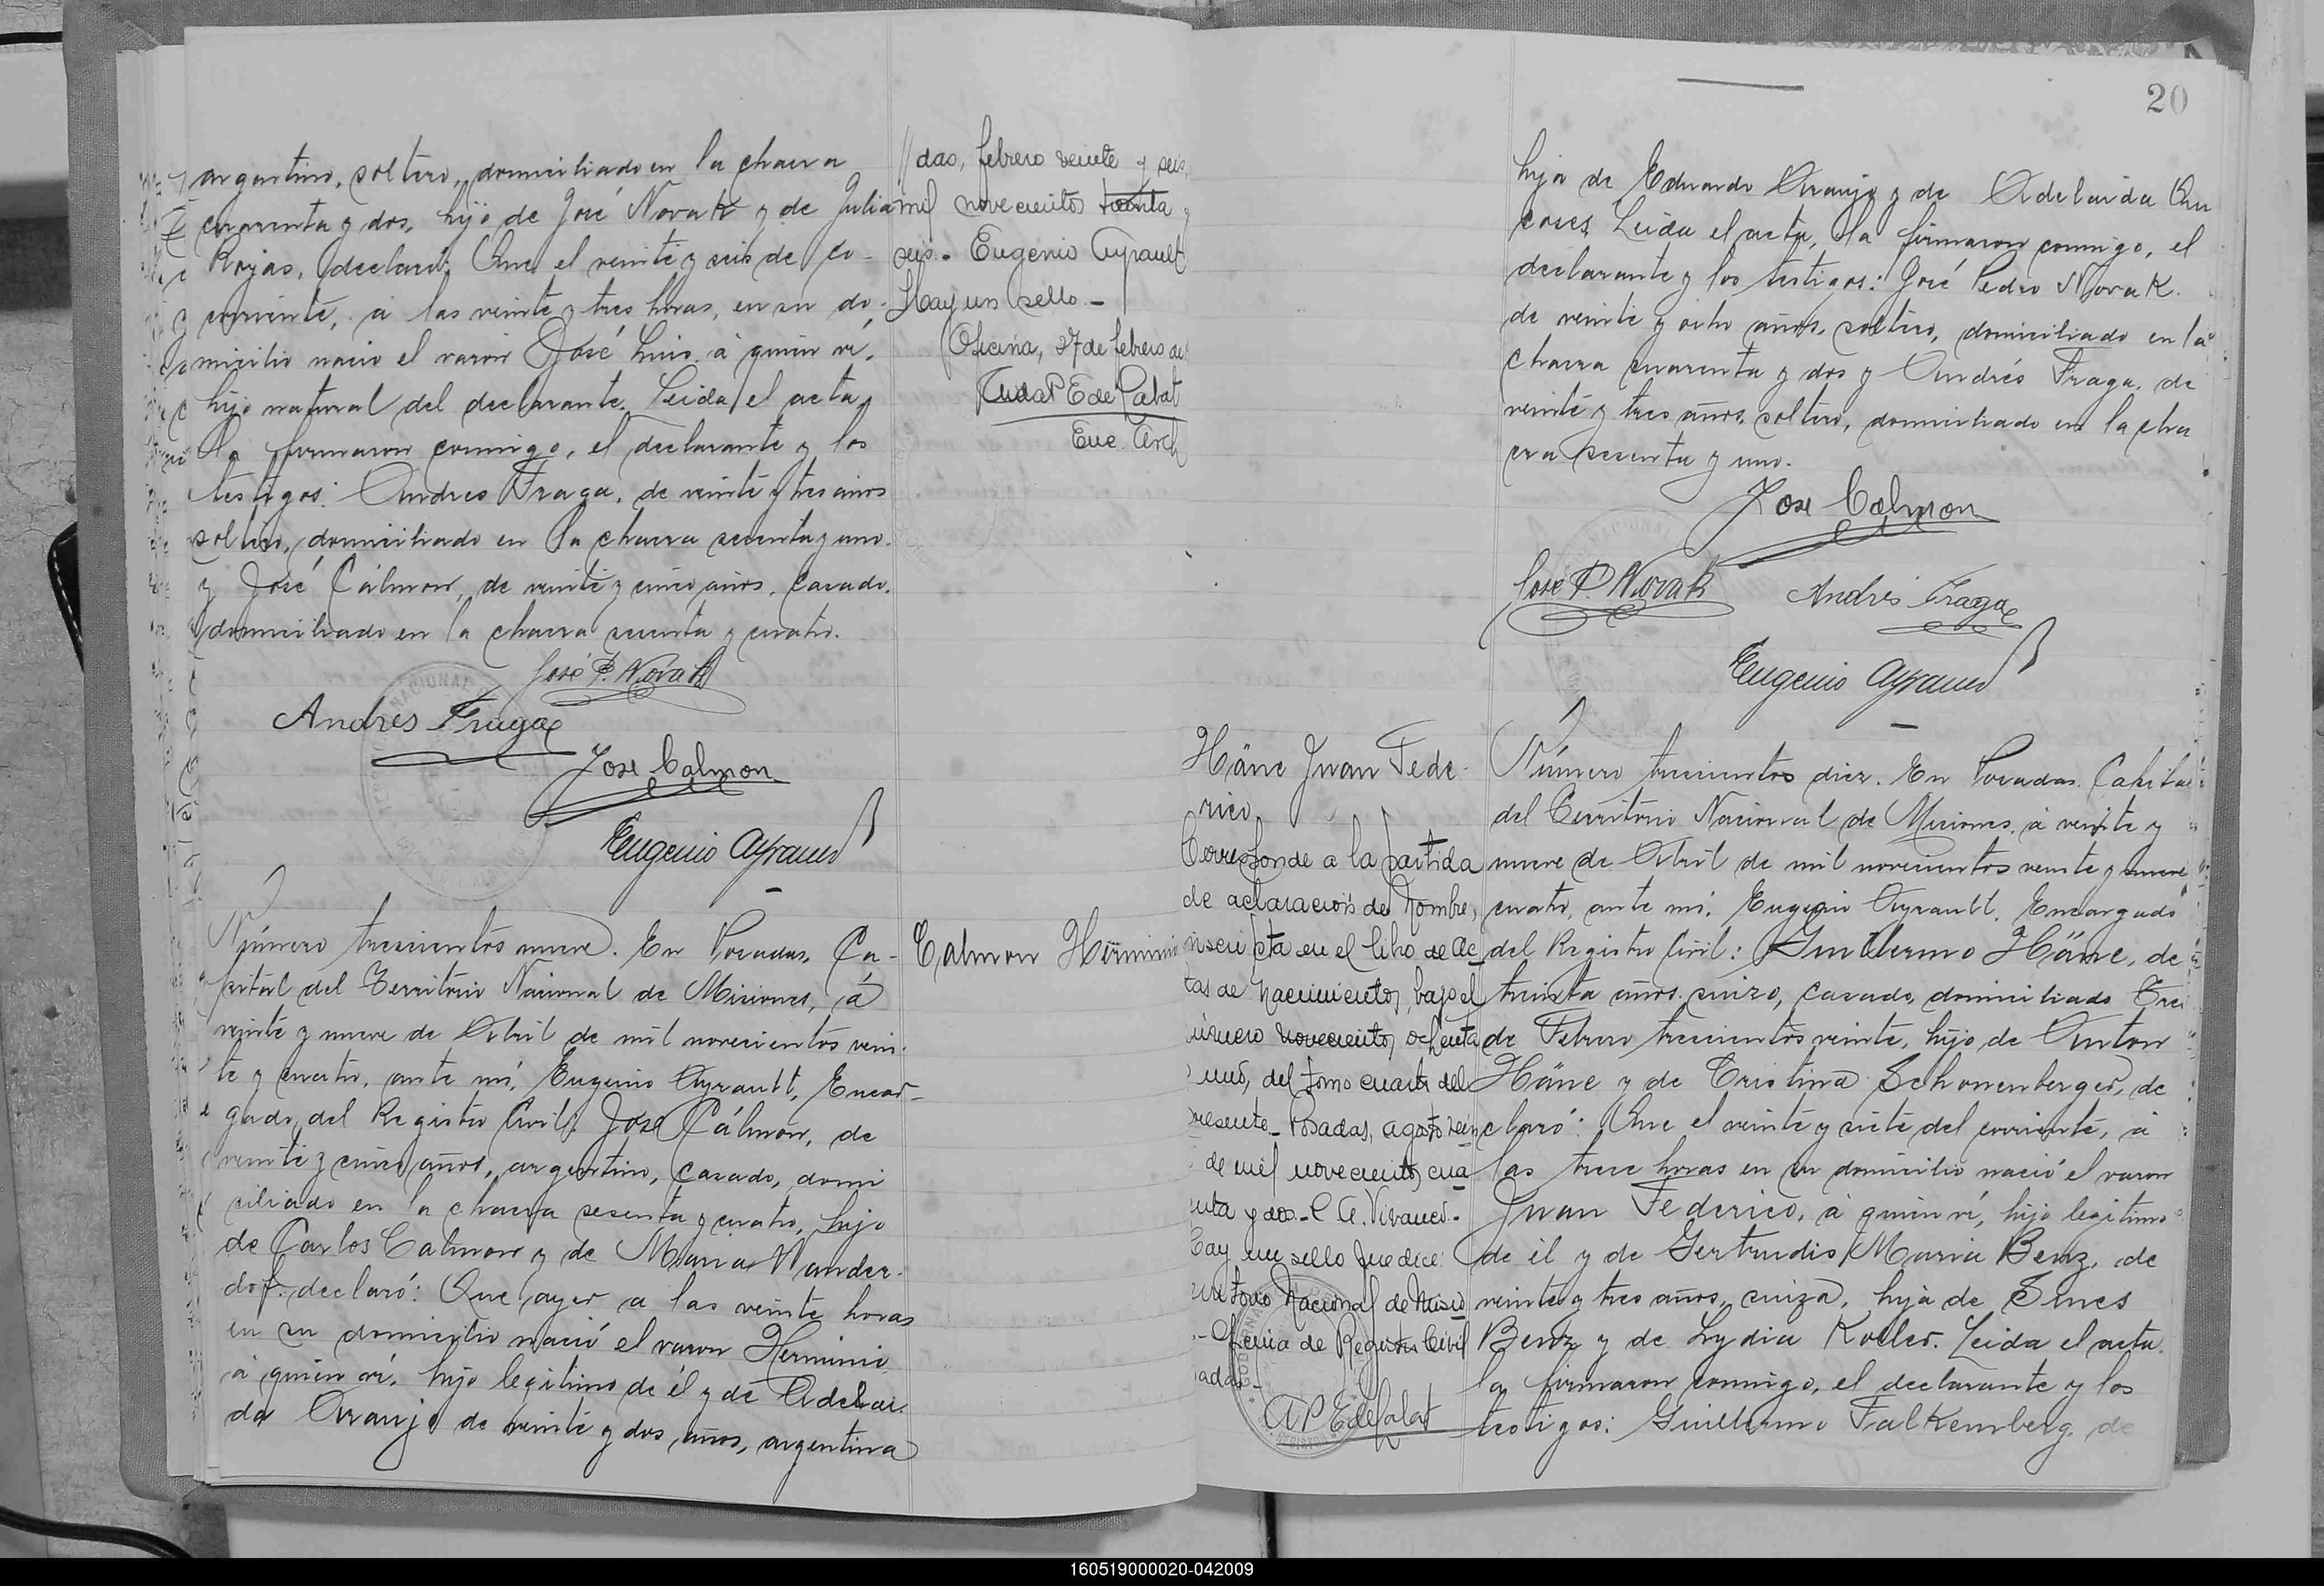 argentino, soltero, domiciliado en la chacra
cuarenta y dos, hijo de José Novak y de Julia
Rojas, declaró: Que el veinte y seis de co-
rriente, á las veinte y tres horas, en su do-
micilio nació el varon José Luis á quien ví,
hijo natural del declarante. Leida el acta
la firmaron conmigo, el declarante y los
testigos: Andres Fraga, de veinte y tres años
soltero, domiciliado en la chacra sesenta y uno
y José Cálmon, de veinte y cinco años, casado,
domiciliado en la chacra sesenta y cuatro.
José P. Novak
Andres Fraga
Jose Calmon
Eugenio Ayrault
Número trescientos nueve. En Posadas, Ca-
pital del Territorio Nacional de Misiones, á
veinte y nueve de Abril de mil novecientos vein-
te y cuatro, ante mí, Eugenio Ayrault, Encar-
gado del Registro Civil: José Cálmon, de
veinte y cinco años, argentino, casado, domi
ciliado en la chacra sesenta y cuatro, hijo
de Carlos Calmon y de Maria Wander-
dof. declaró: Que ayer a las veinte horas
en su domicilio nació el varon Herminio
á quien ví, hijo legitimo de él y de Adelai-
da Araujo de veinte y dos años, argentina
// das, febrero veinte y seis,
mil novecientos treinta y
seis.- Eugenio Ayrault
Hay un sello.-
Oficina, 27 de febrero de
P E de Labat
Enc. Arch
Calmon Herminio
20
hija de Eduardo Araujo y de Adelaida
Leida el acta, la firmaron conmigo, el
declarante y los testigos: José Pedro Novak.
de veinte y ocho años, soltero, domiciliado en la
chacra cuarenta y dos y Andrés Fraga, de
veinte y tres años, soltero, domiciliado en la cha
cra sesenta y uno.
Jose Calmon
José P. Novak
Andrés Fraga
Eugenio Ayrault
Häne Juan Fede-
rico
Corresponde a la partida
de aclaración de nombre,
inscripta en el libro de ac
tas de nacimientos, bajo el
número novecientos ochenta
uno, del tomo cuarto del
presente.- Posadas, agosto
de mil novecientos cua
renta y dos.-
Hay un sello que dice:
Territorio Nacional de Misio
- Oficina de Registro Civil
adas-
Número trescientos diez. En Posadas, Capital
del Territorio Nacional de Misiones, á veinte y
nueve de Abril de mil novecientos veinte y nueve
cuatro, ante mí, Eugenio Ayrault, Encargado
del Registro Civil: Guillermo Häne, de
treinta años, suizo, casado, domiciliado Tres
de Febrero trescientos veinte, hijo de Anton
Häne y de Cristina Schonenberger, de
claró: Que el veinte y siete del corriente, á
las trece horas en su domicilio nació el varon
Juan Federico, á quien ví, hijo legitimo
de él y de Gertrudis Maria Benz, de
veinte y tres años, suiza, hija de
Benz y de Lydia Koller. Leida el acta
la firmaron conmigo, el declarante y los
testigos: Guillermo Falkemberg, de
160519000020-042009